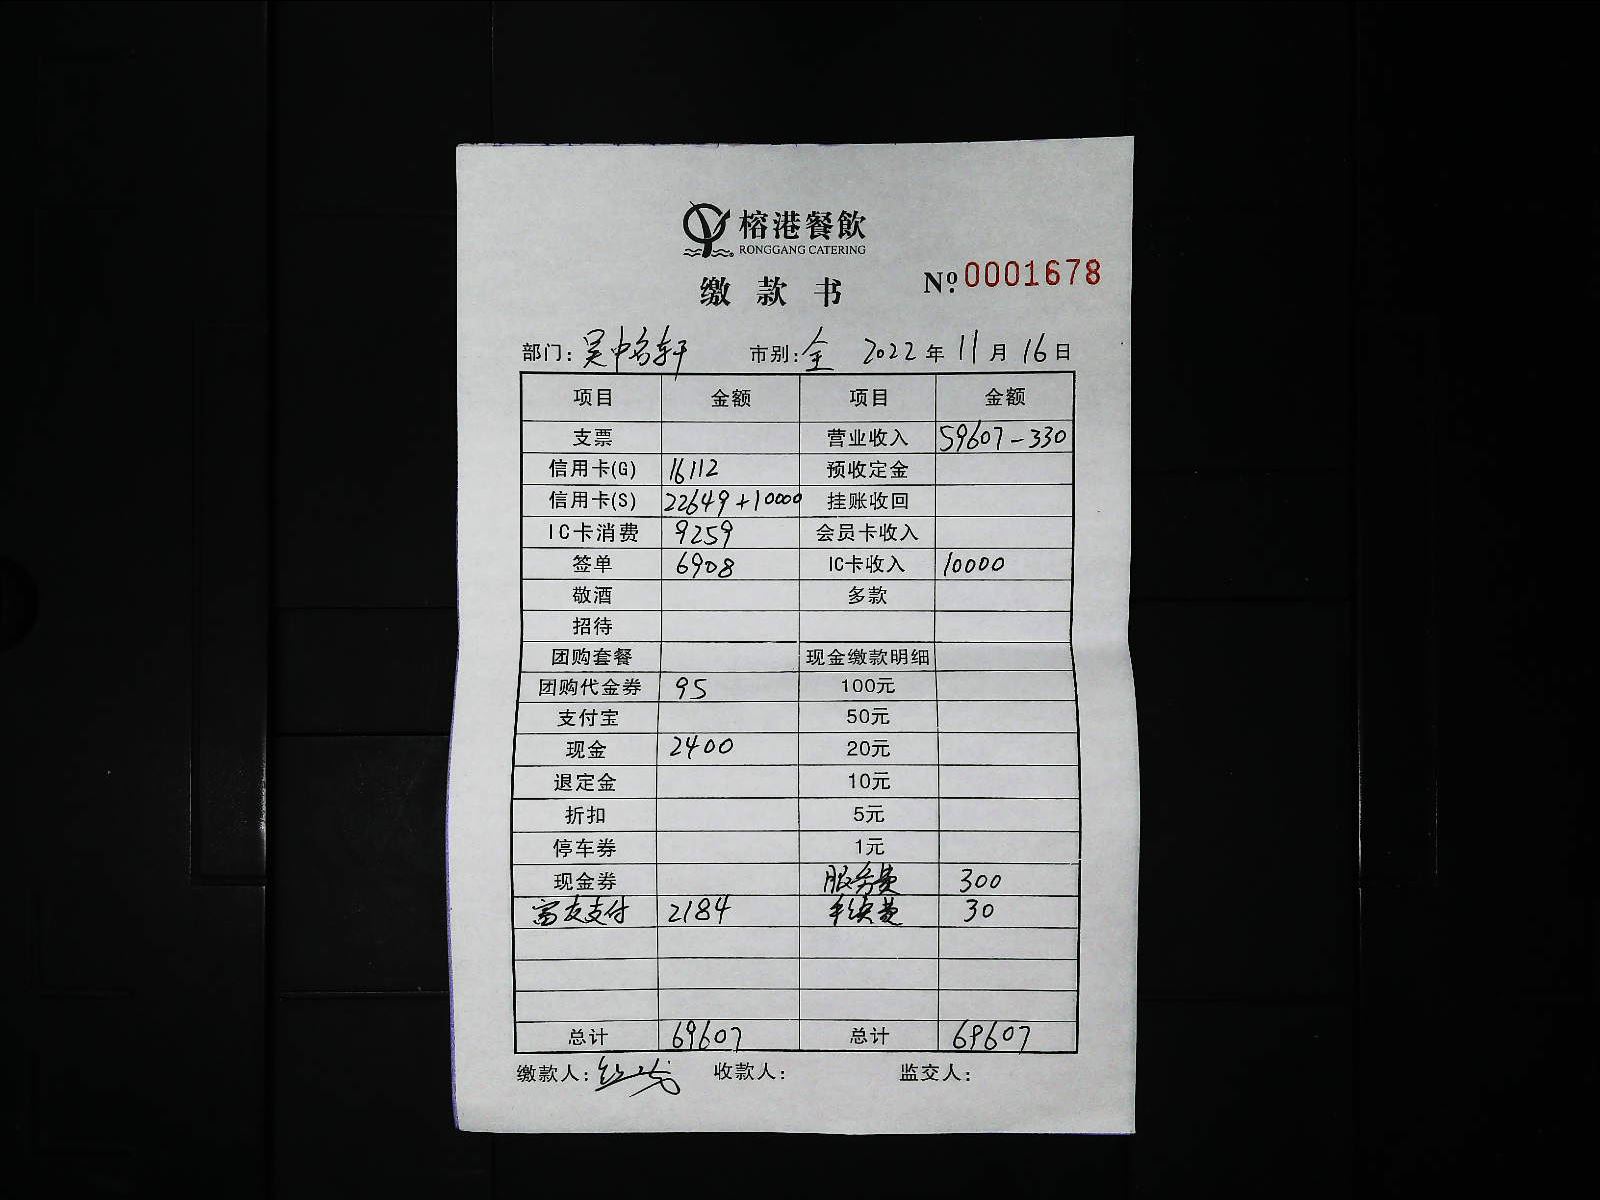 榕港餐飲
RONGGANG CATERING
缴款书
Nº. 0001678
部门: 吴中名轩 市别: 全 2022年11月16日
项目 金额 项目 金额
支票 营业收入 59607-330
信用卡(G) 16112 预收定金
信用卡(S) 22649+10000 挂账收回
IC卡消费 9259 会员卡收入
签单 6908 IC卡收入 10000
敬酒 多款
招待
团购套餐 现金缴款明细
团购代金券 95 100元
支付宝 50元
现金 2400 20元
退定金 10元
折扣 5元
停车券 1元
现金券 服务费 300
富友支付 2184 手续费 30
总计 69607 总计 69607
缴款人: 收款人: 监交人: